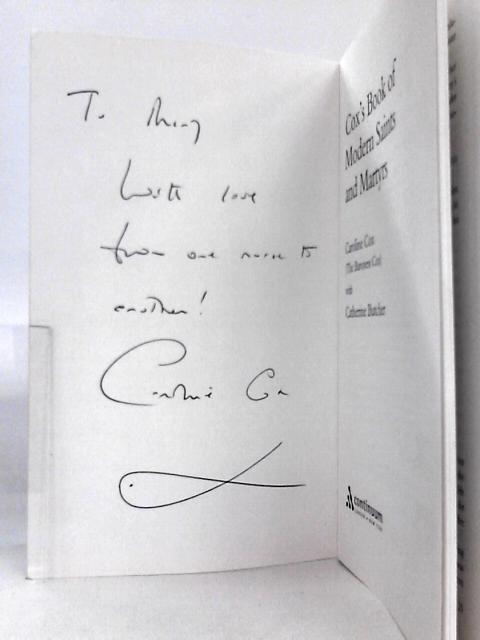 To Mary
With love
from one nurse to
another!
Caroline Cox
Cox's Book of
Modern Saints
and Martyrs
Caroline Cox
(The Baroness Cox)
with
Catherine Butcher
continuum
LONDON • NEW YORK